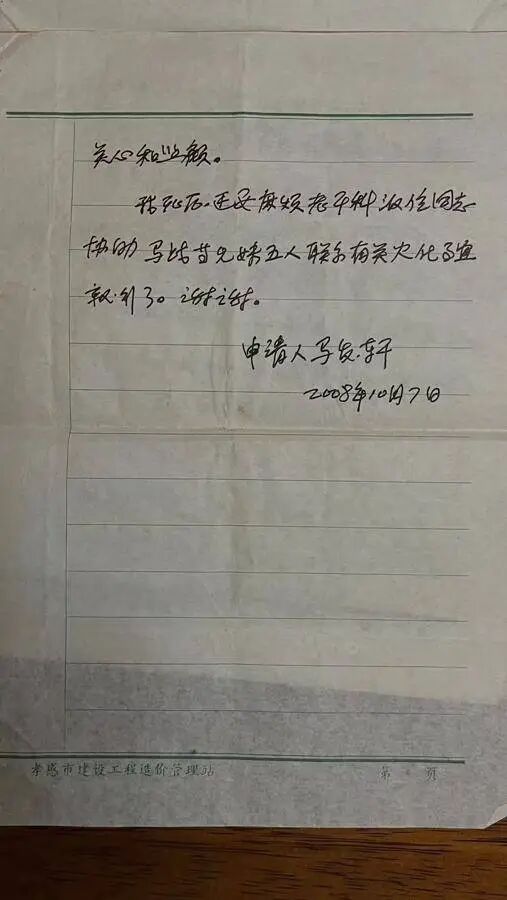 关心和照顾。
我死后，还要麻烦老干科派位同志
协助马皓昔兄妹五人联系有关火化事宜
就行了。谢谢。
申请人马发轩
2008年10月7日
孝感市建设工程造价管理站
第 页